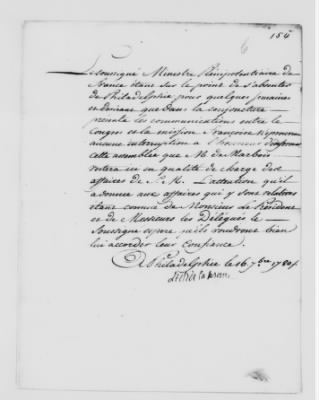 154
6
Le soussigné Ministre Plénipotentiaire de
France étant sur le point de s'absenter
de Philadelphie pour quelques semaines
et désirant que dans la conjoncture
présente les communications entre le
Congrès et la mission Françoise n'éprouvent
aucune interruption a l'honneur d'informer
cette assemblée que M. de Marbois
restera ici en qualité de chargé des
affaires de S. M. L'attention qu'il
a donnée aux affaires qui y sont relatives
étant connue de Monsieur le Président
et de Messieurs les Délégués le
Soussigné espère qu'ils voudront bien
lui accorder leur confiance.
A Philadelphie le 16 7bre